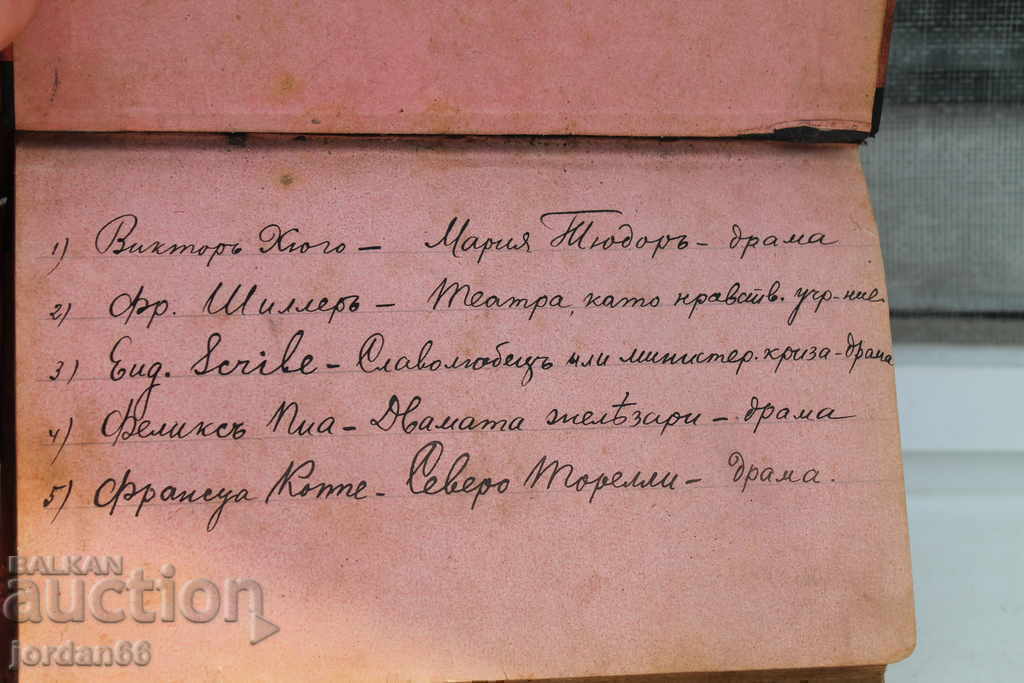 1) Викторъ Хюго – Мария Тюдоръ – драма
2) Фр. Шиллеръ – Театра, като нравств. учр-ние
3) Eug. Scribe – Славолюбецъ или министер. криза – драма
4) Феликсъ Пиа – Двамата желѣзари – драма
5) Франсуа Коппе – Северо Торелли – драма.
BALKAN
auction
jordan66